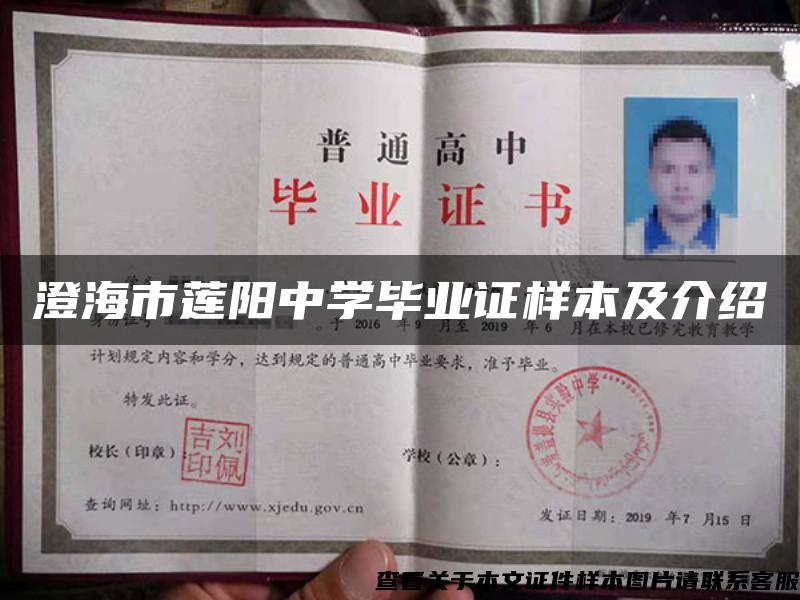 普通高中
毕业证书
澄海市莲阳中学毕业证样本及介绍
身份证号 。于 2016 年 9 月至 2019 年 6 月在本校已修完教育教学
计划规定内容和学分，达到规定的普通高中毕业要求，准予毕业。
特发此证。
校长（印章）：
吉刘
印佩
学校（公章）：
县实验中学
查询网址：http://www.xjedu.gov.cn
发证日期：2019 年 7 月 15 日
查看关于本文证件样本图片请联系客服